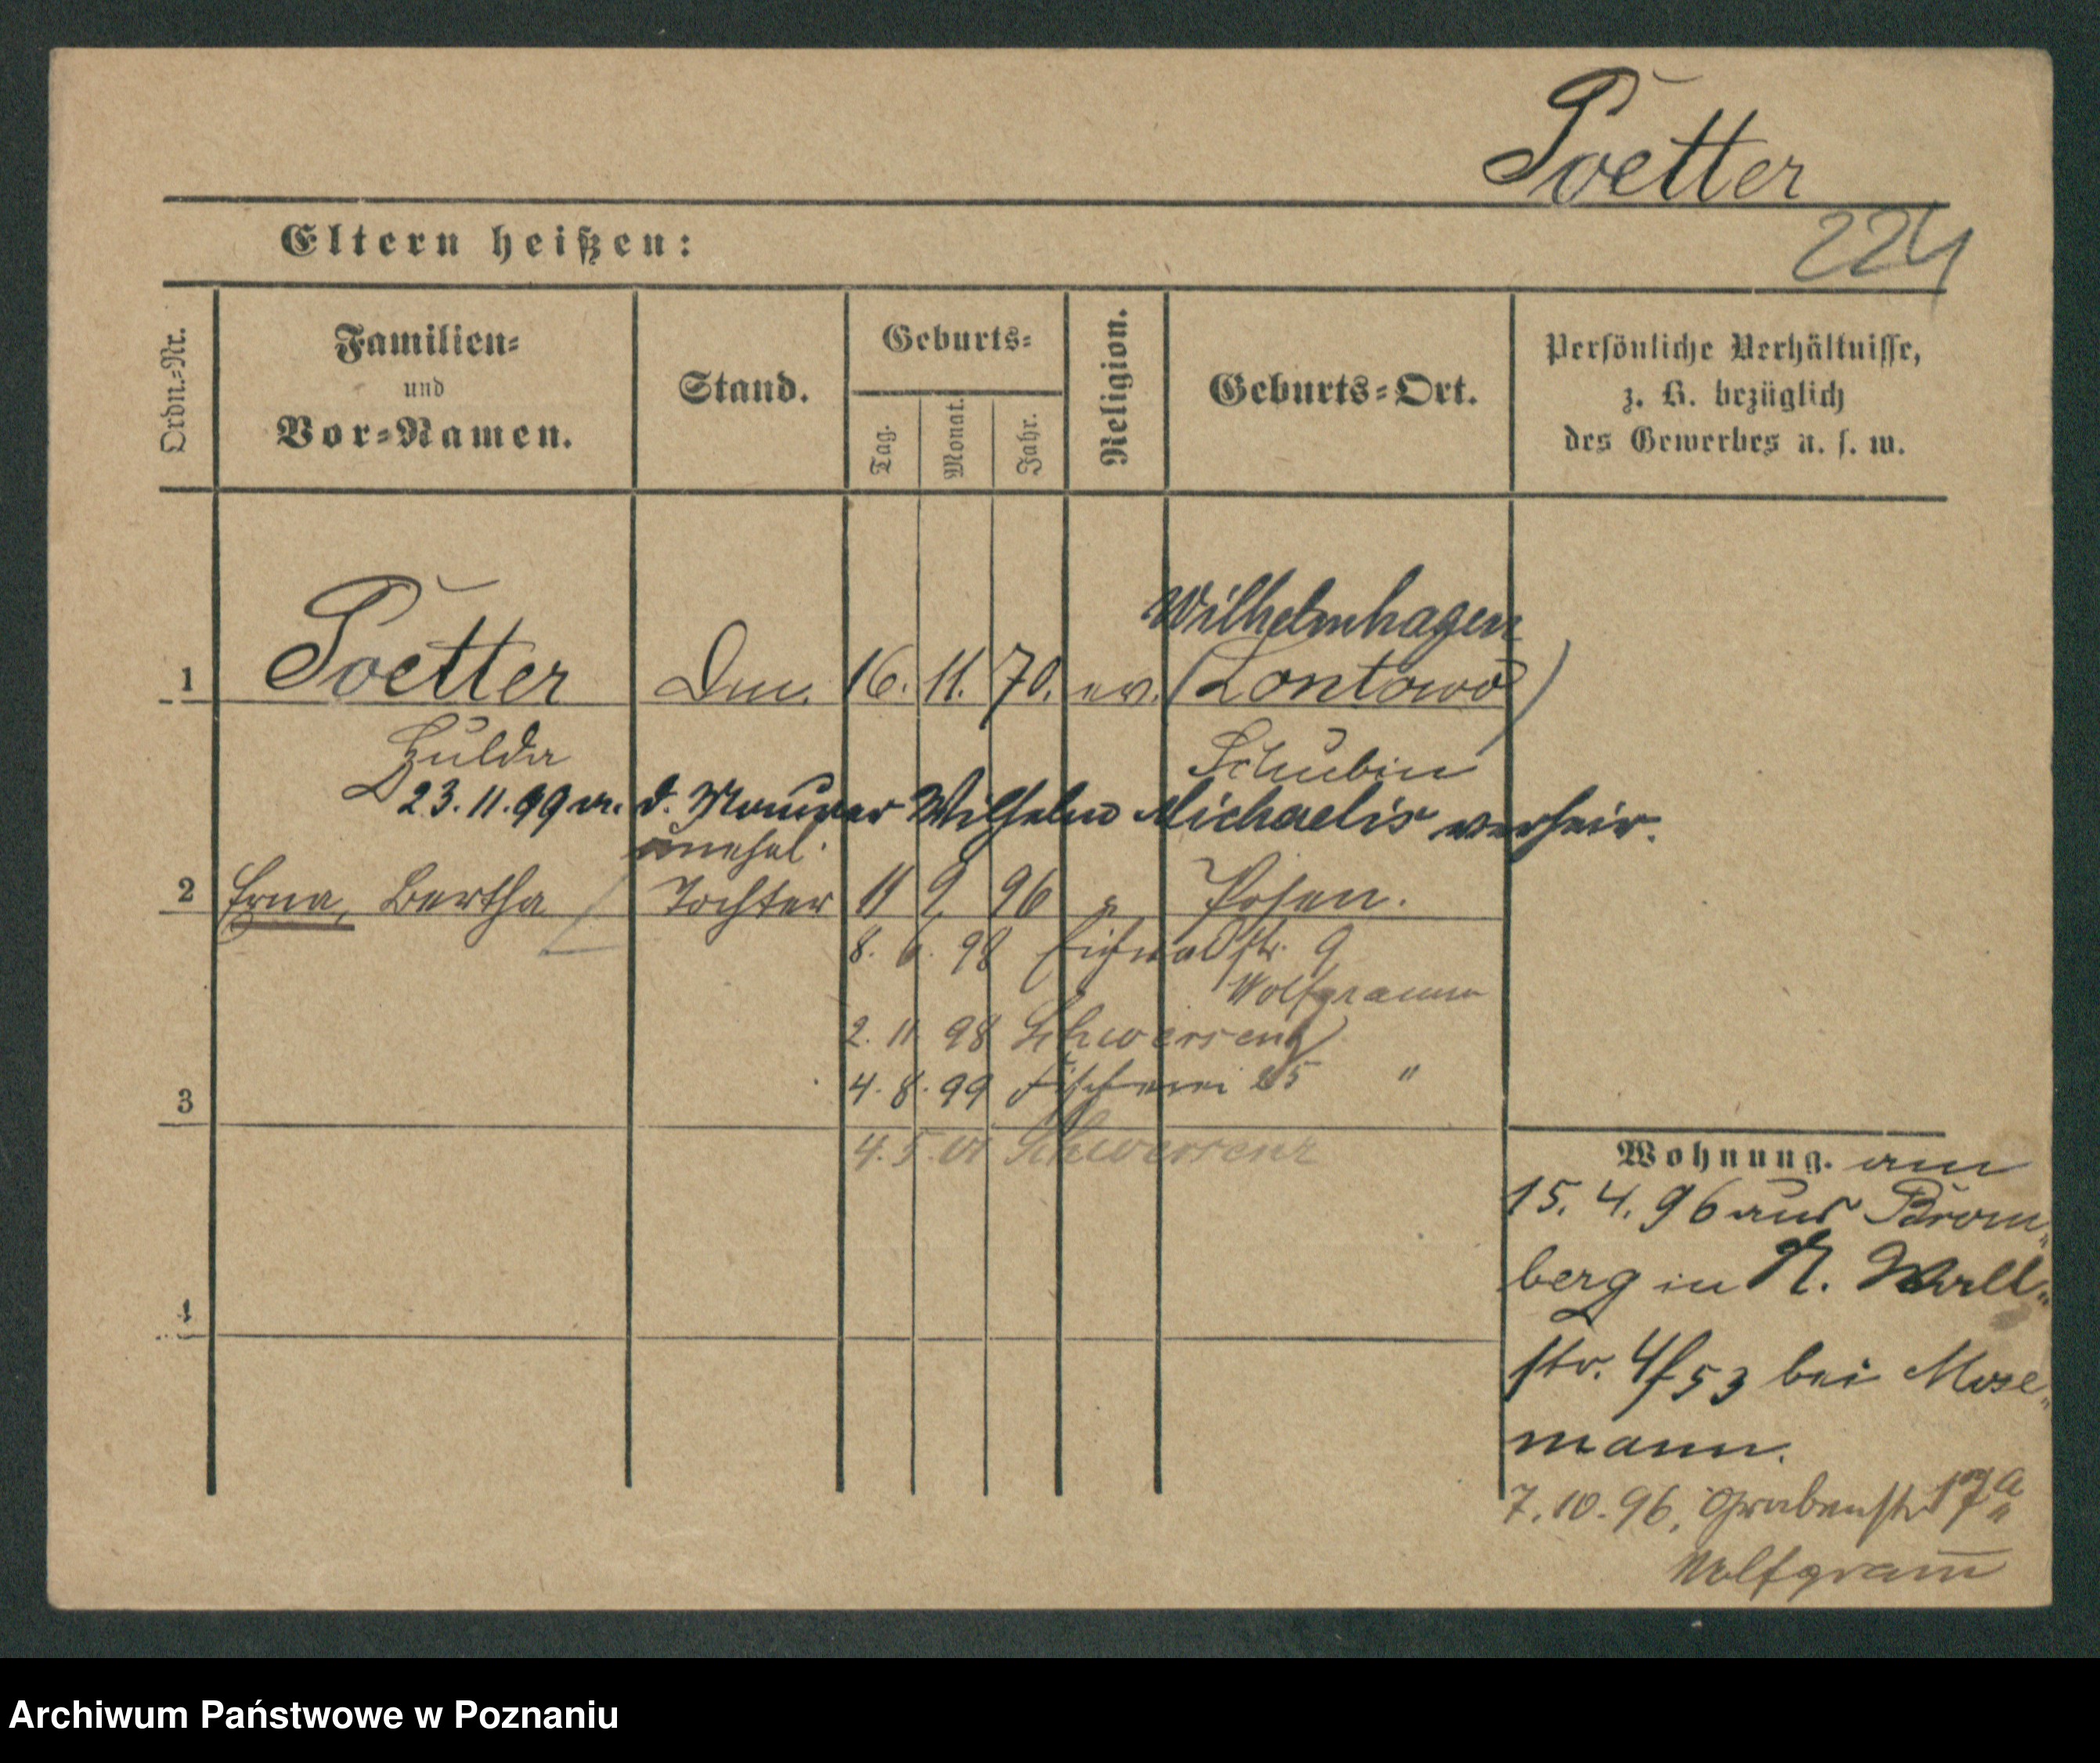 Poetter
224
Eltern heißen:
Ordn.-Nr.
Familien-
und
Vor-Namen.
Stand.
Geburts-
Tag.
Monat.
Jahr.
Religion.
Geburts-Ort.
Persönliche Verhältnisse,
z. B. bezüglich
des Gewerbes u. s. w.
Wilhelmhagen
1 Poetter 16. 11. 70. ev. (Lontowo)
Hulda Schubin
23.11.99 d. Maurer Wilhelm Michaelis verheir.
unehel.
2 Erna, Bertha Tochter 11 9 96 Posen.
8. 6. 98 Eichwaldstr. 9
Wolfgramm
2. 11. 98 Schwersenz
3 4. 8. 99 Fischerei 25 "
4. 5. 01 Schwersenz
4
Wohnung. am
15. 4. 96 aus Brom-
berg in N. Wall-
str. 4/53 bei Mose-
mann.
7. 10. 96. Grabenstr 17a
Wolfgram̅
Archiwum Państwowe w Poznaniu